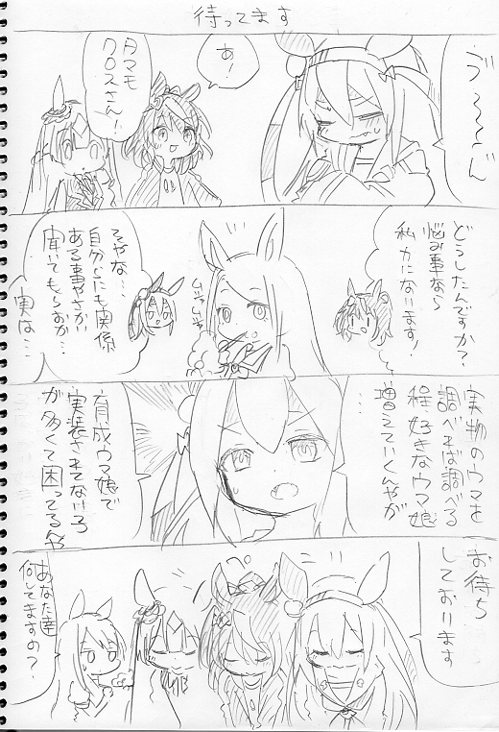 待ってます
う〜〜〜ん
あ！
タマモ
クロスさん！
どうしたんですか？
悩み事なら
私力になります！
そやな…
自分らにも関係
ある事やさかい
聞いてもらおか…
実は…
実物のウマを
調べれば調べる
程好きなウマ娘
増えていくんやが
…
育成ウマ娘で
実装されてない子
が多くて困ってるんや
お待ち
しております
あなた達
何してますの？